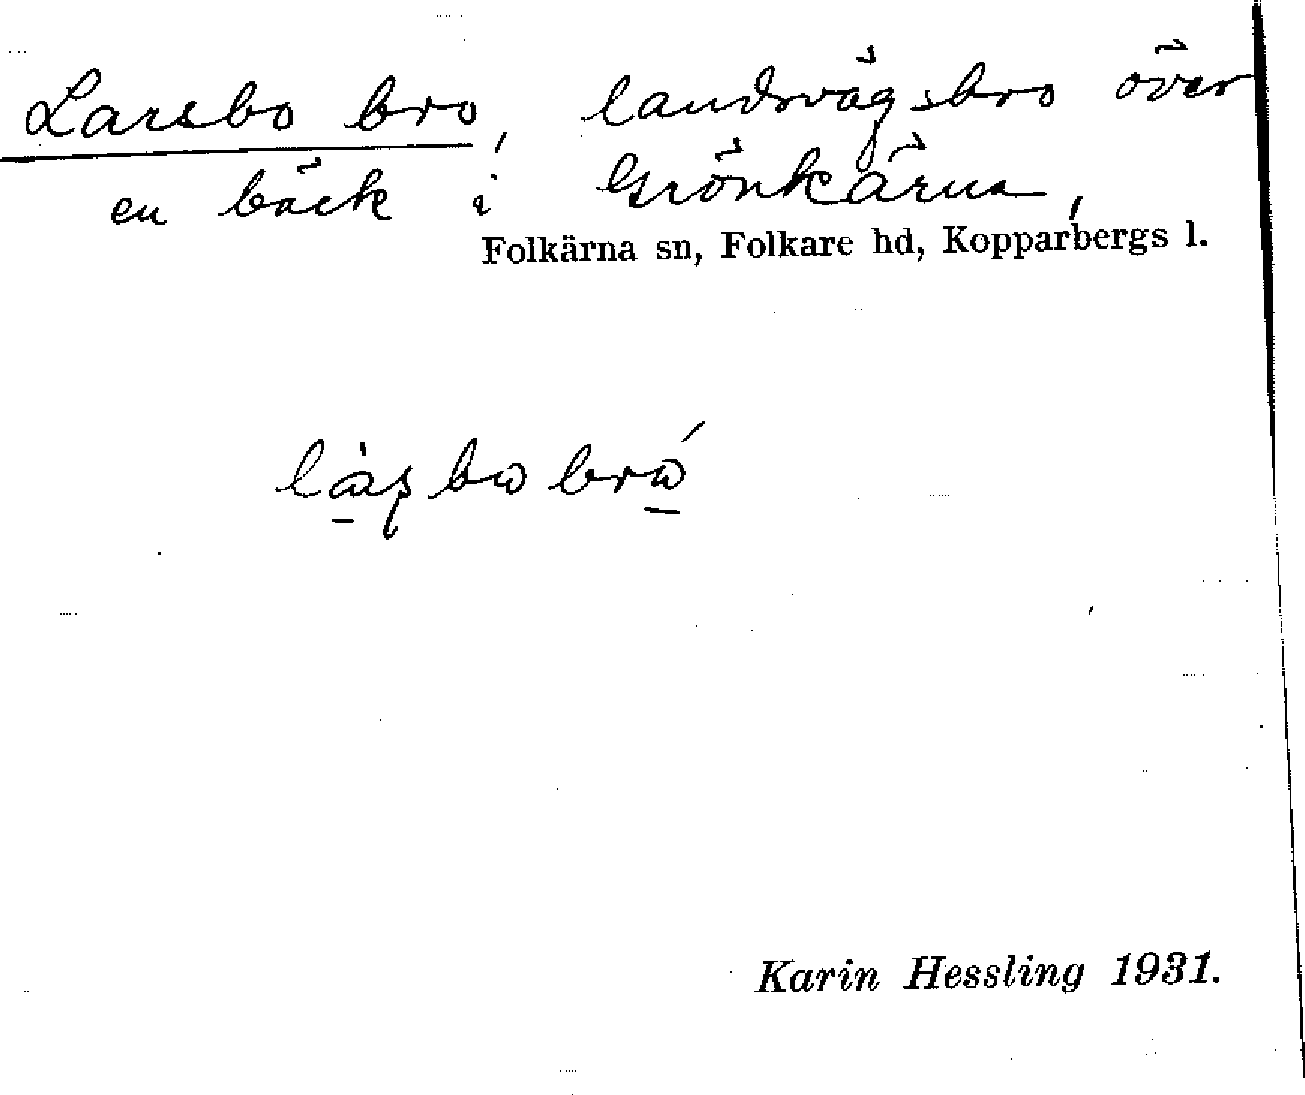 Larsbo bro, landsvägsbro över
en bäck i Grönkärna,
Folkärna sn, Folkare hd, Kopparbergs l.
Karin Hessling 1931.